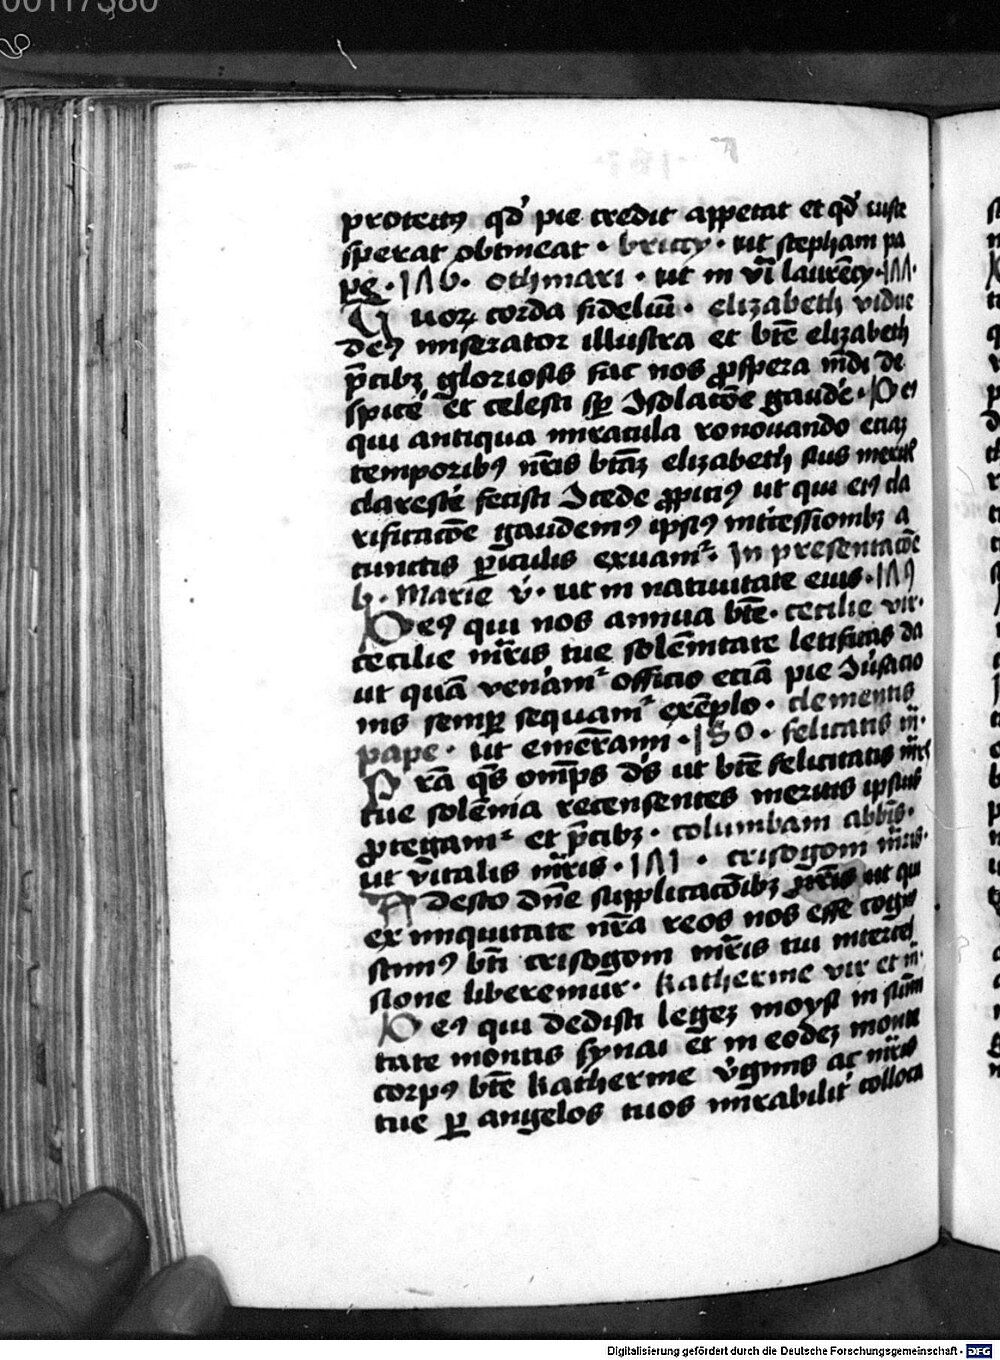 00117380
protectꝰ qd᷎ pie credit appetat et qd᷎ iuste
sperat obtineat · briccy · ut stephani pa
pe · 1Λ6 · othmari · ut in vi laure̅cy · 1ΛΛ ·
Tuoꝝ corda fideliu̅ · elizabeth vidue
deꝰ miserator illustra et bt̅e elizabeth
p̅cibꝫ gloriosis fac nos ꝓspera mu̅di de
spice̅ et celesti sp̅ ↄsolac̅oe gaude̅ · Deꝰ
qui antiqua miracula ronouando eciaꝫ
temporibꝰ nr̅is bt̅aꝫ elizabeth suis meritꝭ
claresce̅ fecisti ↄcede ꝓpiciꝰ ut qui eiꝰ cla
rificac̅oe gaudemꝰ ipsiꝰ intᷓcessionibꝫ a
cunctis ꝑiculis exuamᷣ · In presentac̅oe
b · Marie v̅ · ut in natiuitate eius · 1Λ9
Deꝰ qui nos annua bt̅e · cecilie vir ·
cecilie mr̅is tue sole̅nitate letificas da
ut qua̅ venamᷣ officio ecia̅ pie ↄu̅sacio
nis semꝑ sequamᷣ exe̅plo · clementis
pape · ut emer̅ami · 180 · felicitatis m̅ ·
Pr̅a qs̅ omp̅s ds̅ ut bt̅e felicitatis mr̅is
tue sole̅nia recensentes meritis ipsius
ꝓtegamᷣ et p̅cibꝫ · columbani abbis̅ ·
ut v̅italis mr̅is · 1Λ1 · crisogoni mr̅is ·
Adesto dn̅e supplicac̅oibꝫ nr̅is ut qui
ex iniquitate nr̅a reos nos esse cogno
scimꝰ bt̅i crisogoni mr̅is tui interces
sione liberemur · katherine vir et m̅ ·
Deꝰ qui dedisti legeꝫ moysi in su̅mi
tate montis synai et in eodeꝫ monte
corpꝰ bt̅e katherine v̅ginis ac mr̅is
tue ꝑ angelos tuos mirabilit᷎ colloca
Digitalisierung gefördert durch die Deutsche Forschungsgemeinschaft - DFG